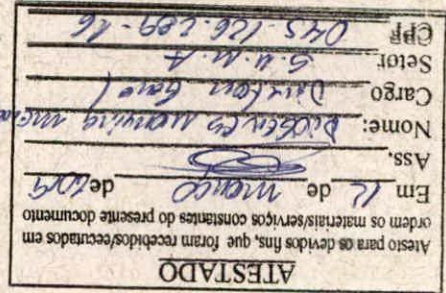 ATESTADO
Atesto para os devidos fins, que foram recebidos/executados em
ordem os materiais/serviços constantes do presente documento
Em 12 de março de 2019
Ass.
Nome: Diógenes
Cargo Diretor Geral
Setor S.U.M.A
CPF 045.126.289-16